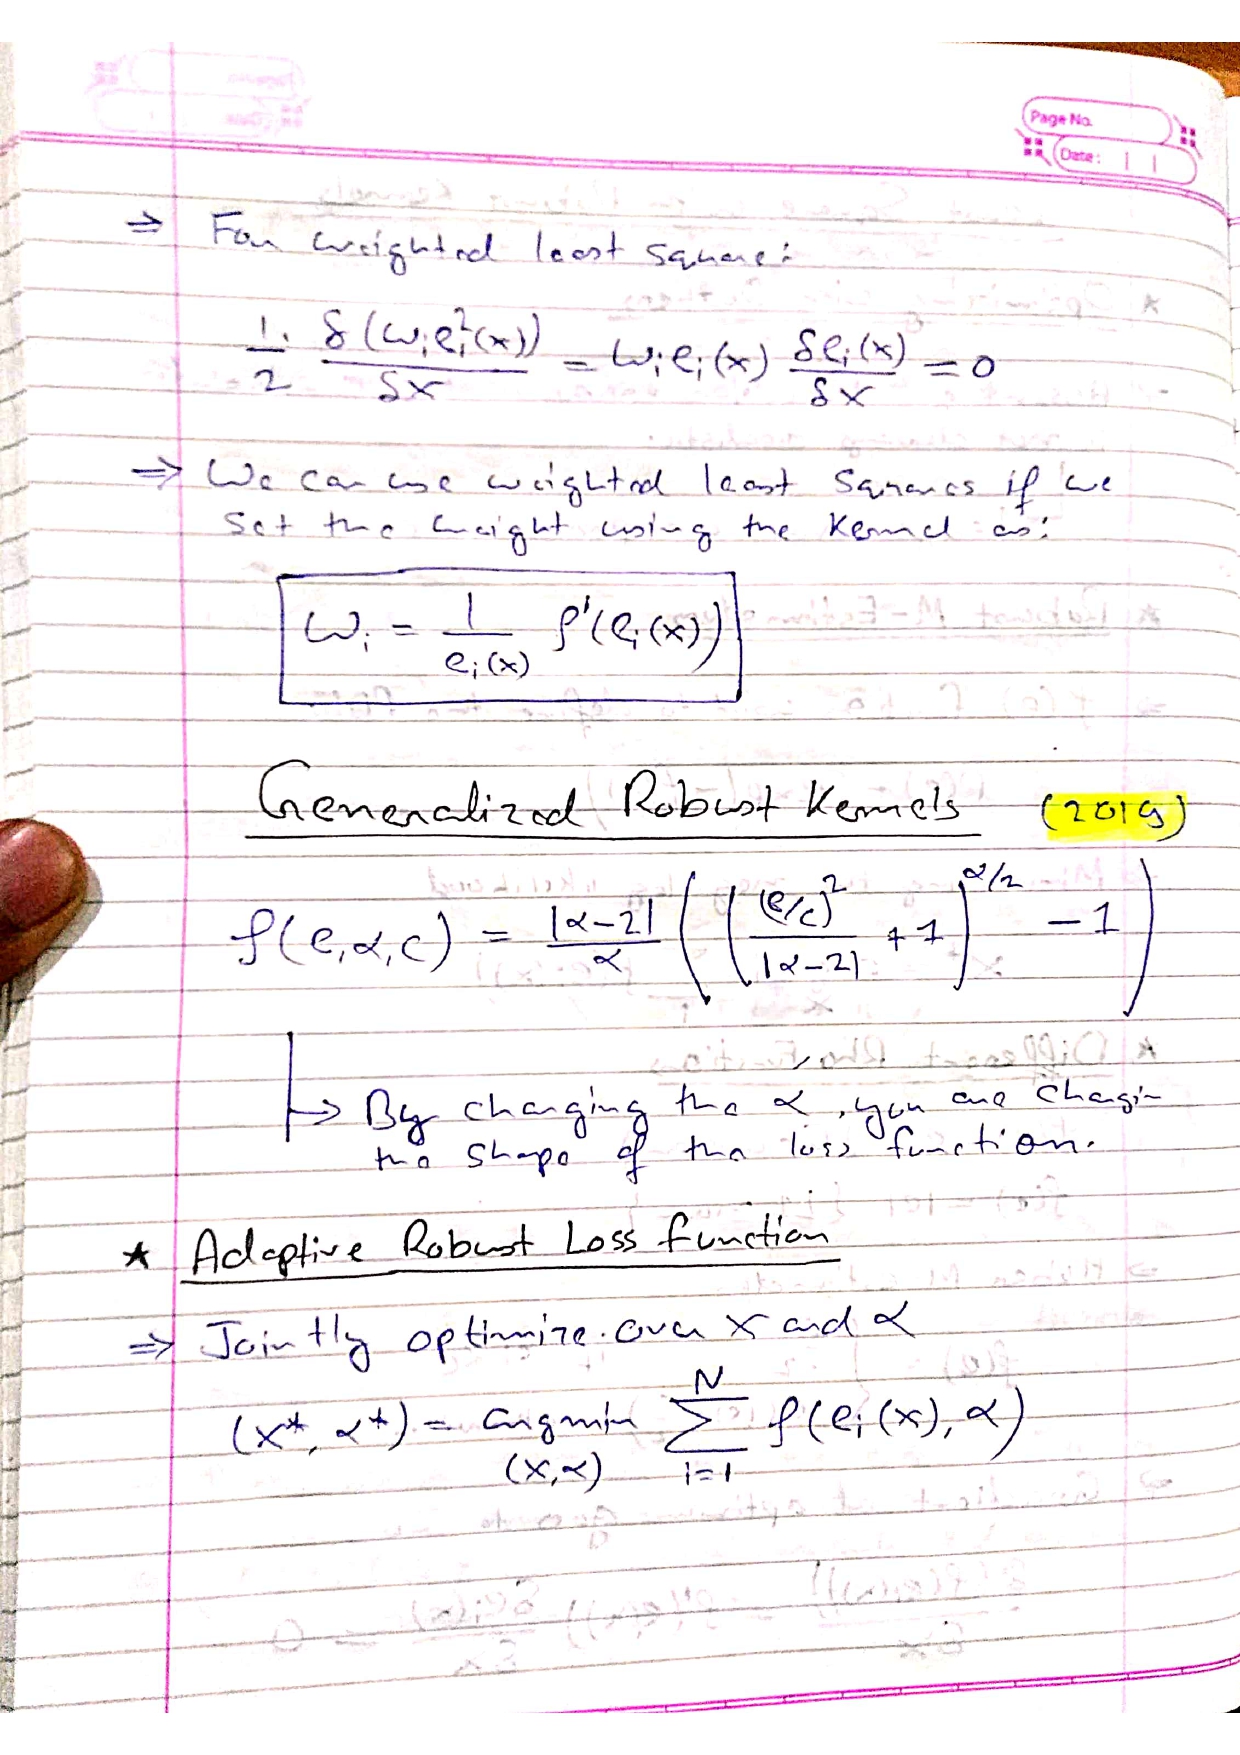 Page No.
Date:
⇒ For weighted least square:
1/2 · δ(ω_i e_i²(x))/δx = ω_i e_i(x) δe_i(x)/δx = 0
⇒ We can use weighted least squares if we
set the weight using the kernel as:
ω_i = 1/e_i(x) ρ'(e_i(x))
Generalized Robust Kernels (2019)
ρ(e,α,c) = |α-2|/α (((e/c)²/|α-2| + 1)^(α/2) - 1)
↳ By changing the α, you are changin
the shape of the loss function.
★ Adaptive Robust Loss function
⇒ Jointly optimize over x and α
(x*, α*) = argmin_(x,α) Σ_{i=1}^{N} ρ(e_i(x), α)